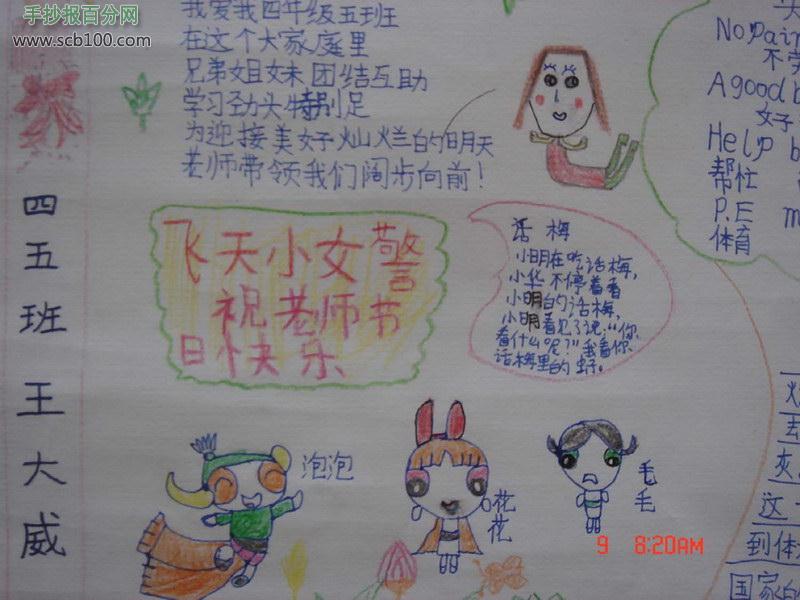 手抄报百分网
www.scb100.com
我爱我四年级五班
在这个大家庭里
兄弟姐妹团结互助
学习劲头特别足
为迎接美好灿烂的明天
老师带领我们阔步向前！
四五班 王大威
飞天小女警
祝老师节
日快乐
话梅
小明在吃话梅，
小华不停着看
小明的话梅，
小明看见了说："你
看什么呢？"我看你
话梅里的虫子。
No pain
不劳
A good b
Help b
帮忙
P.E m
体育
泡泡
花花
毛毛
去
这一
到体
国家的
9 8:20AM